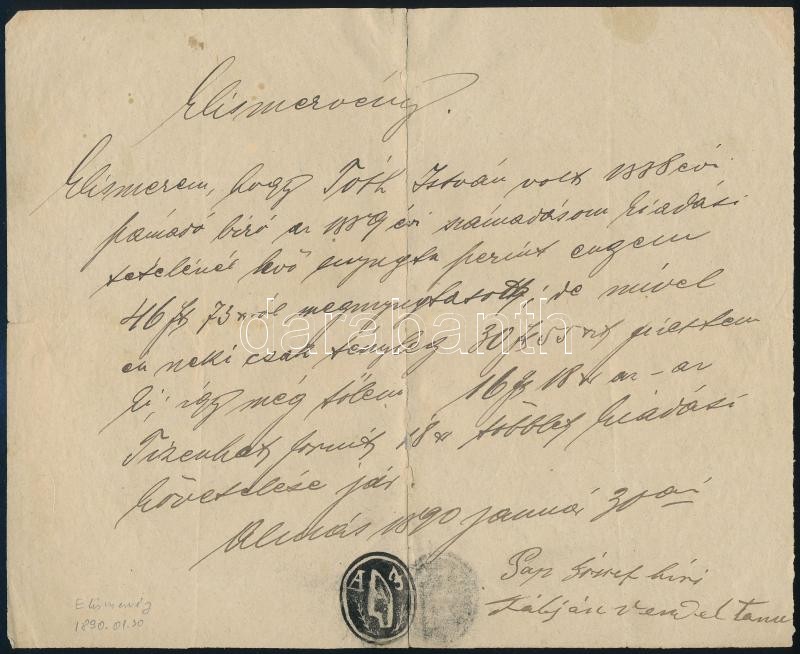 Elismervény.
Elismerem, hogy Tóth István volt 1888 évi
számadó biró az 1889 évi számadásom kiadási
tételénél levő nyugta szerint engem
46 ft 73 xról megnyugtatott, de mivel
én neki csak tényleg 30 ft 55 xrt fizettem
ki, így még tőlem 16 ft 18 xr az - az
Tizenhat forint 18 xr többlet kiadási
követelése jár.
Almás 1890 január 30 án
Pap József biró
Vendel tanu
A
darabanth
Elismervény
1890.01.30